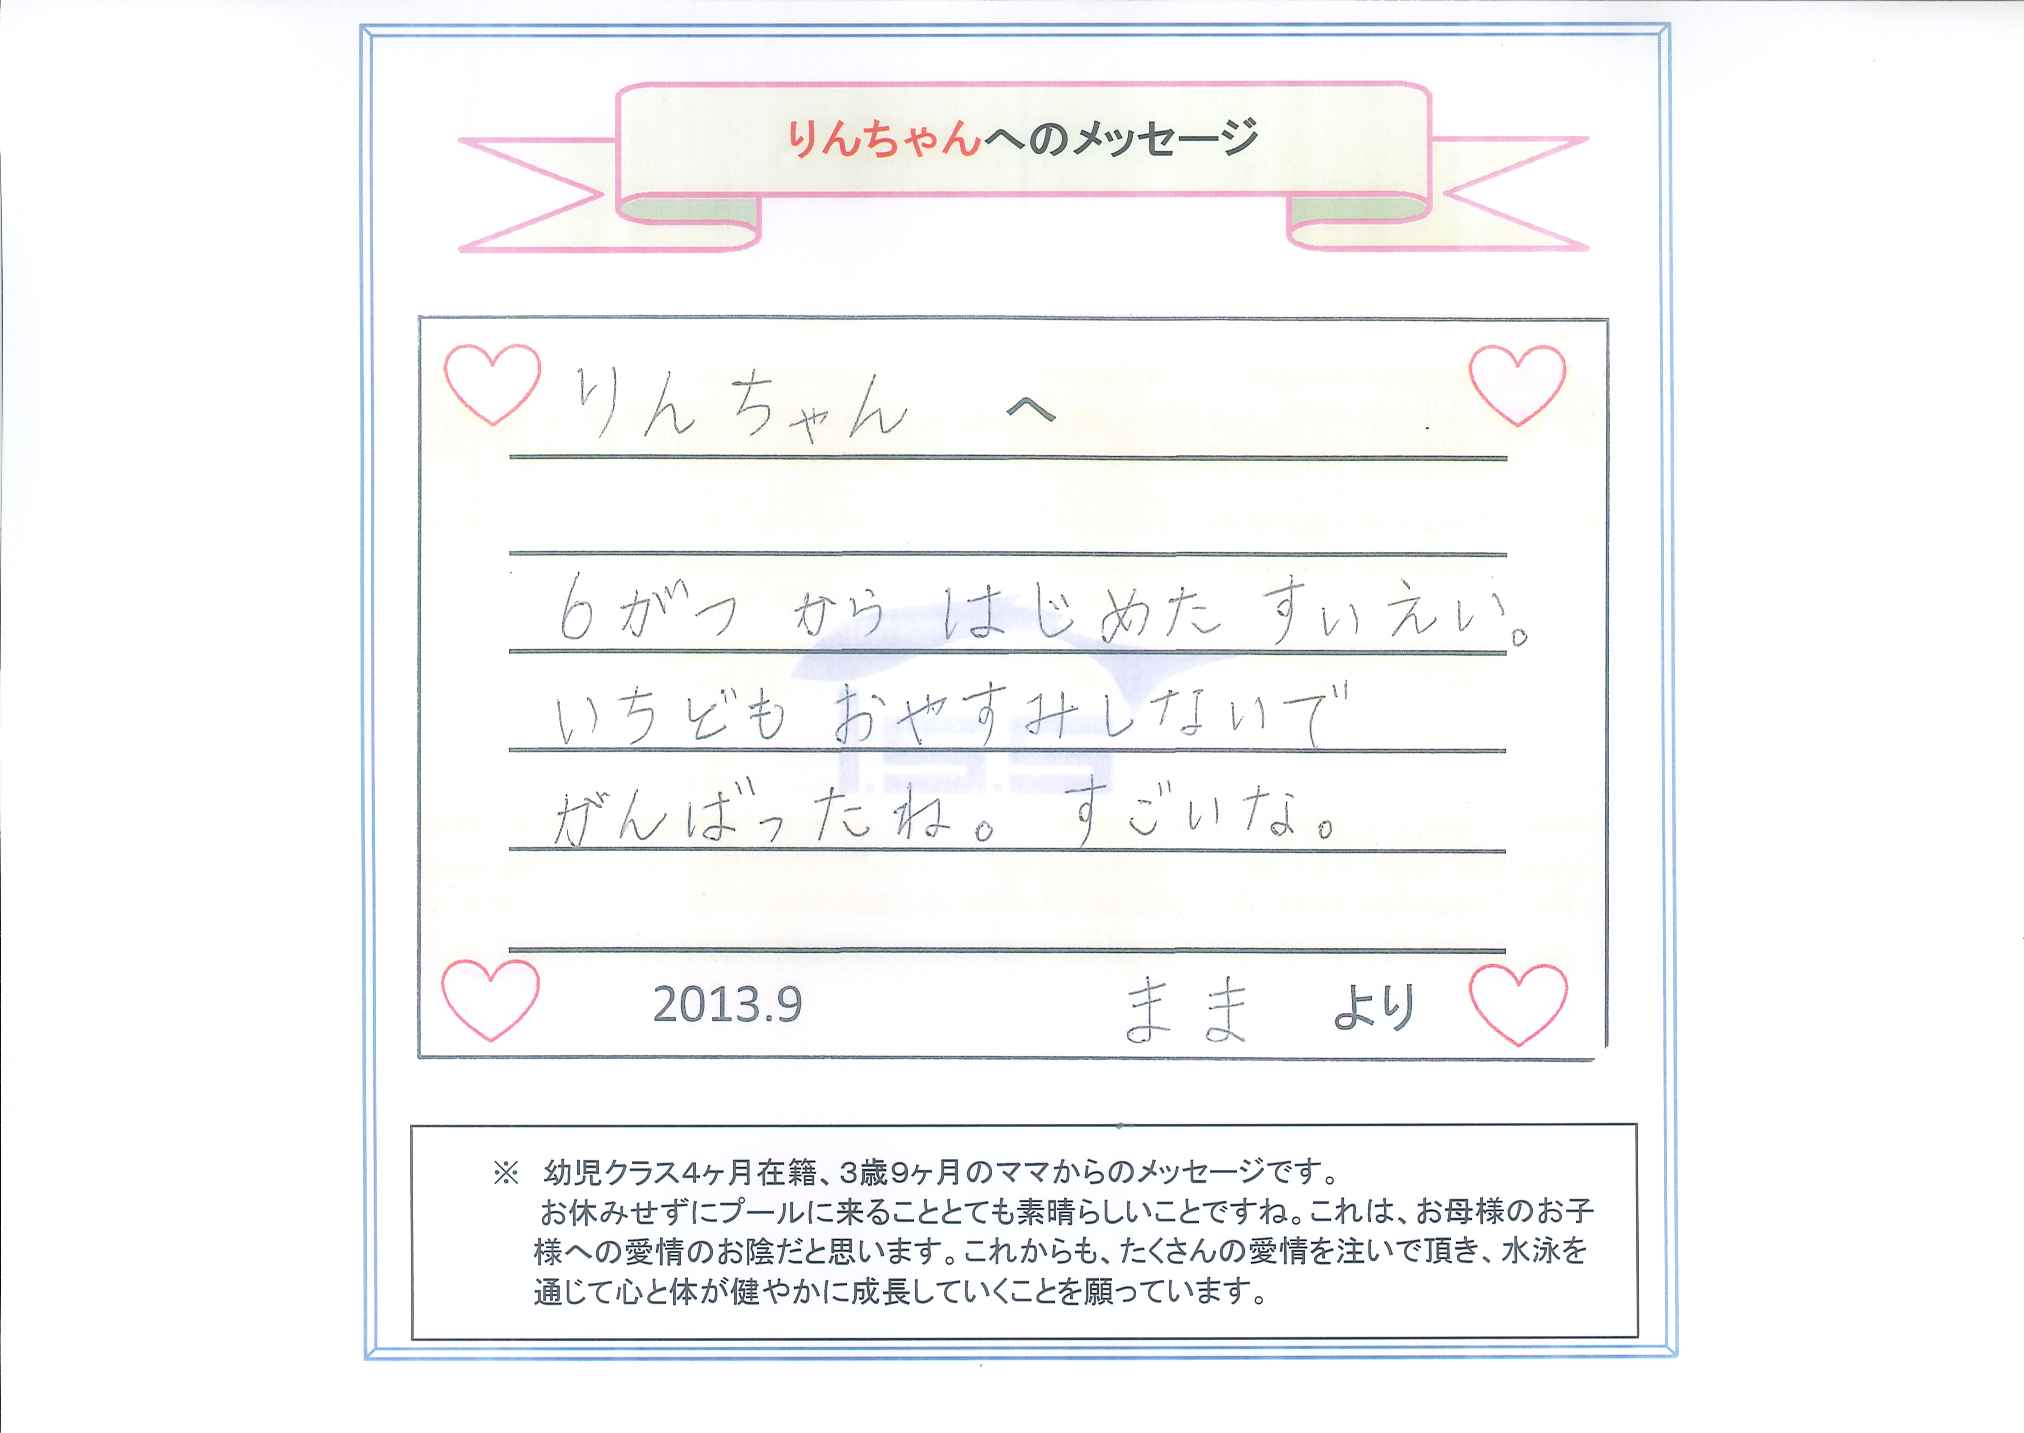 りんちゃんへのメッセージ
りんちゃん へ
6がつ から はじめた すいえい。
いちども おやすみしないで
がんばったね。 すごいな。
2013.9 まま より
I.S.S
※ 幼児クラス4ヶ月在籍、3歳9ヶ月のママからのメッセージです。
お休みせずにプールに来ることとても素晴らしいことですね。これは、お母様のお子
様への愛情のお陰だと思います。これからも、たくさんの愛情を注いで頂き、水泳を
通じて心と体が健やかに成長していくことを願っています。